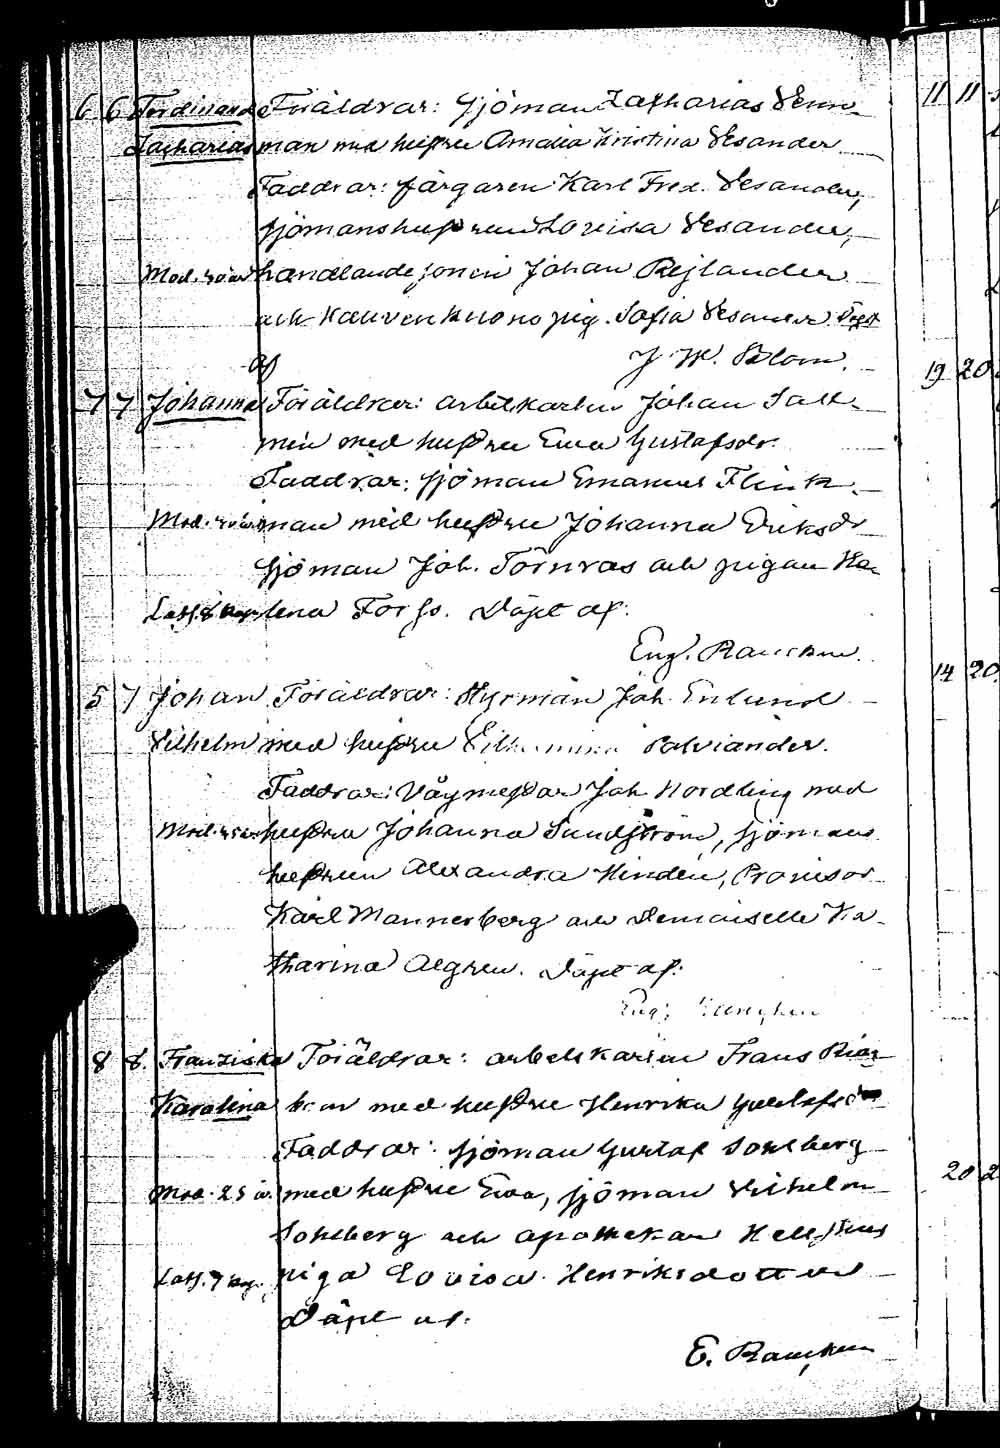 6 6 Ferdinand Föräldrar: Sjöman Zacharias Venn-
Zacharias man med hustru Amalia Kristina Vesander
Faddrar: färgaren Karl Fred. Vesander,
sjömanshustrun Lovisa Vesander,
Mod. handlande sonen Johan Rejlander
och pig. Sofia Vesander. Döpt
af J W. Blom.
7 7 Johanna Föräldrar: arbetskarlen Johan Sall-
men med hustru Eva Gustafsdr.
Faddrar: sjöman Emanuel Flink-
Mod. man med hustru Johanna Eriksdr
sjöman Joh. Törnroos och pigan He-
lena Forss. Döpt af:
Eug. Rancken.
5 7 Johan Föräldrar: Styrman Joh. Enlund
Vilhelm med hustru Vilhelmina Salviander.
Faddrar: Vågmästar Joh. Nordling med
Mod. hustru Johanna Sundström, sjömans
hustrun Alexandra Hindén, Provisor
Karl Mannerberg och Demoiselle Ka-
tharina Algren. Döpt af:
Eug. Rancken
8 8. Franziska Föräldrar: arbetskarlen Frans
Karolina med hustru Henrika Gustafsdr
Faddrar: sjöman Gustaf Sohlberg
Mod. 25 år. med hustru Eva, sjöman Vilhelm
Sohlberg och apothekar
piga Lovisa Henriksdotter
Döpt af:
E. Rancken
11 11
19 20
14 20
20 2